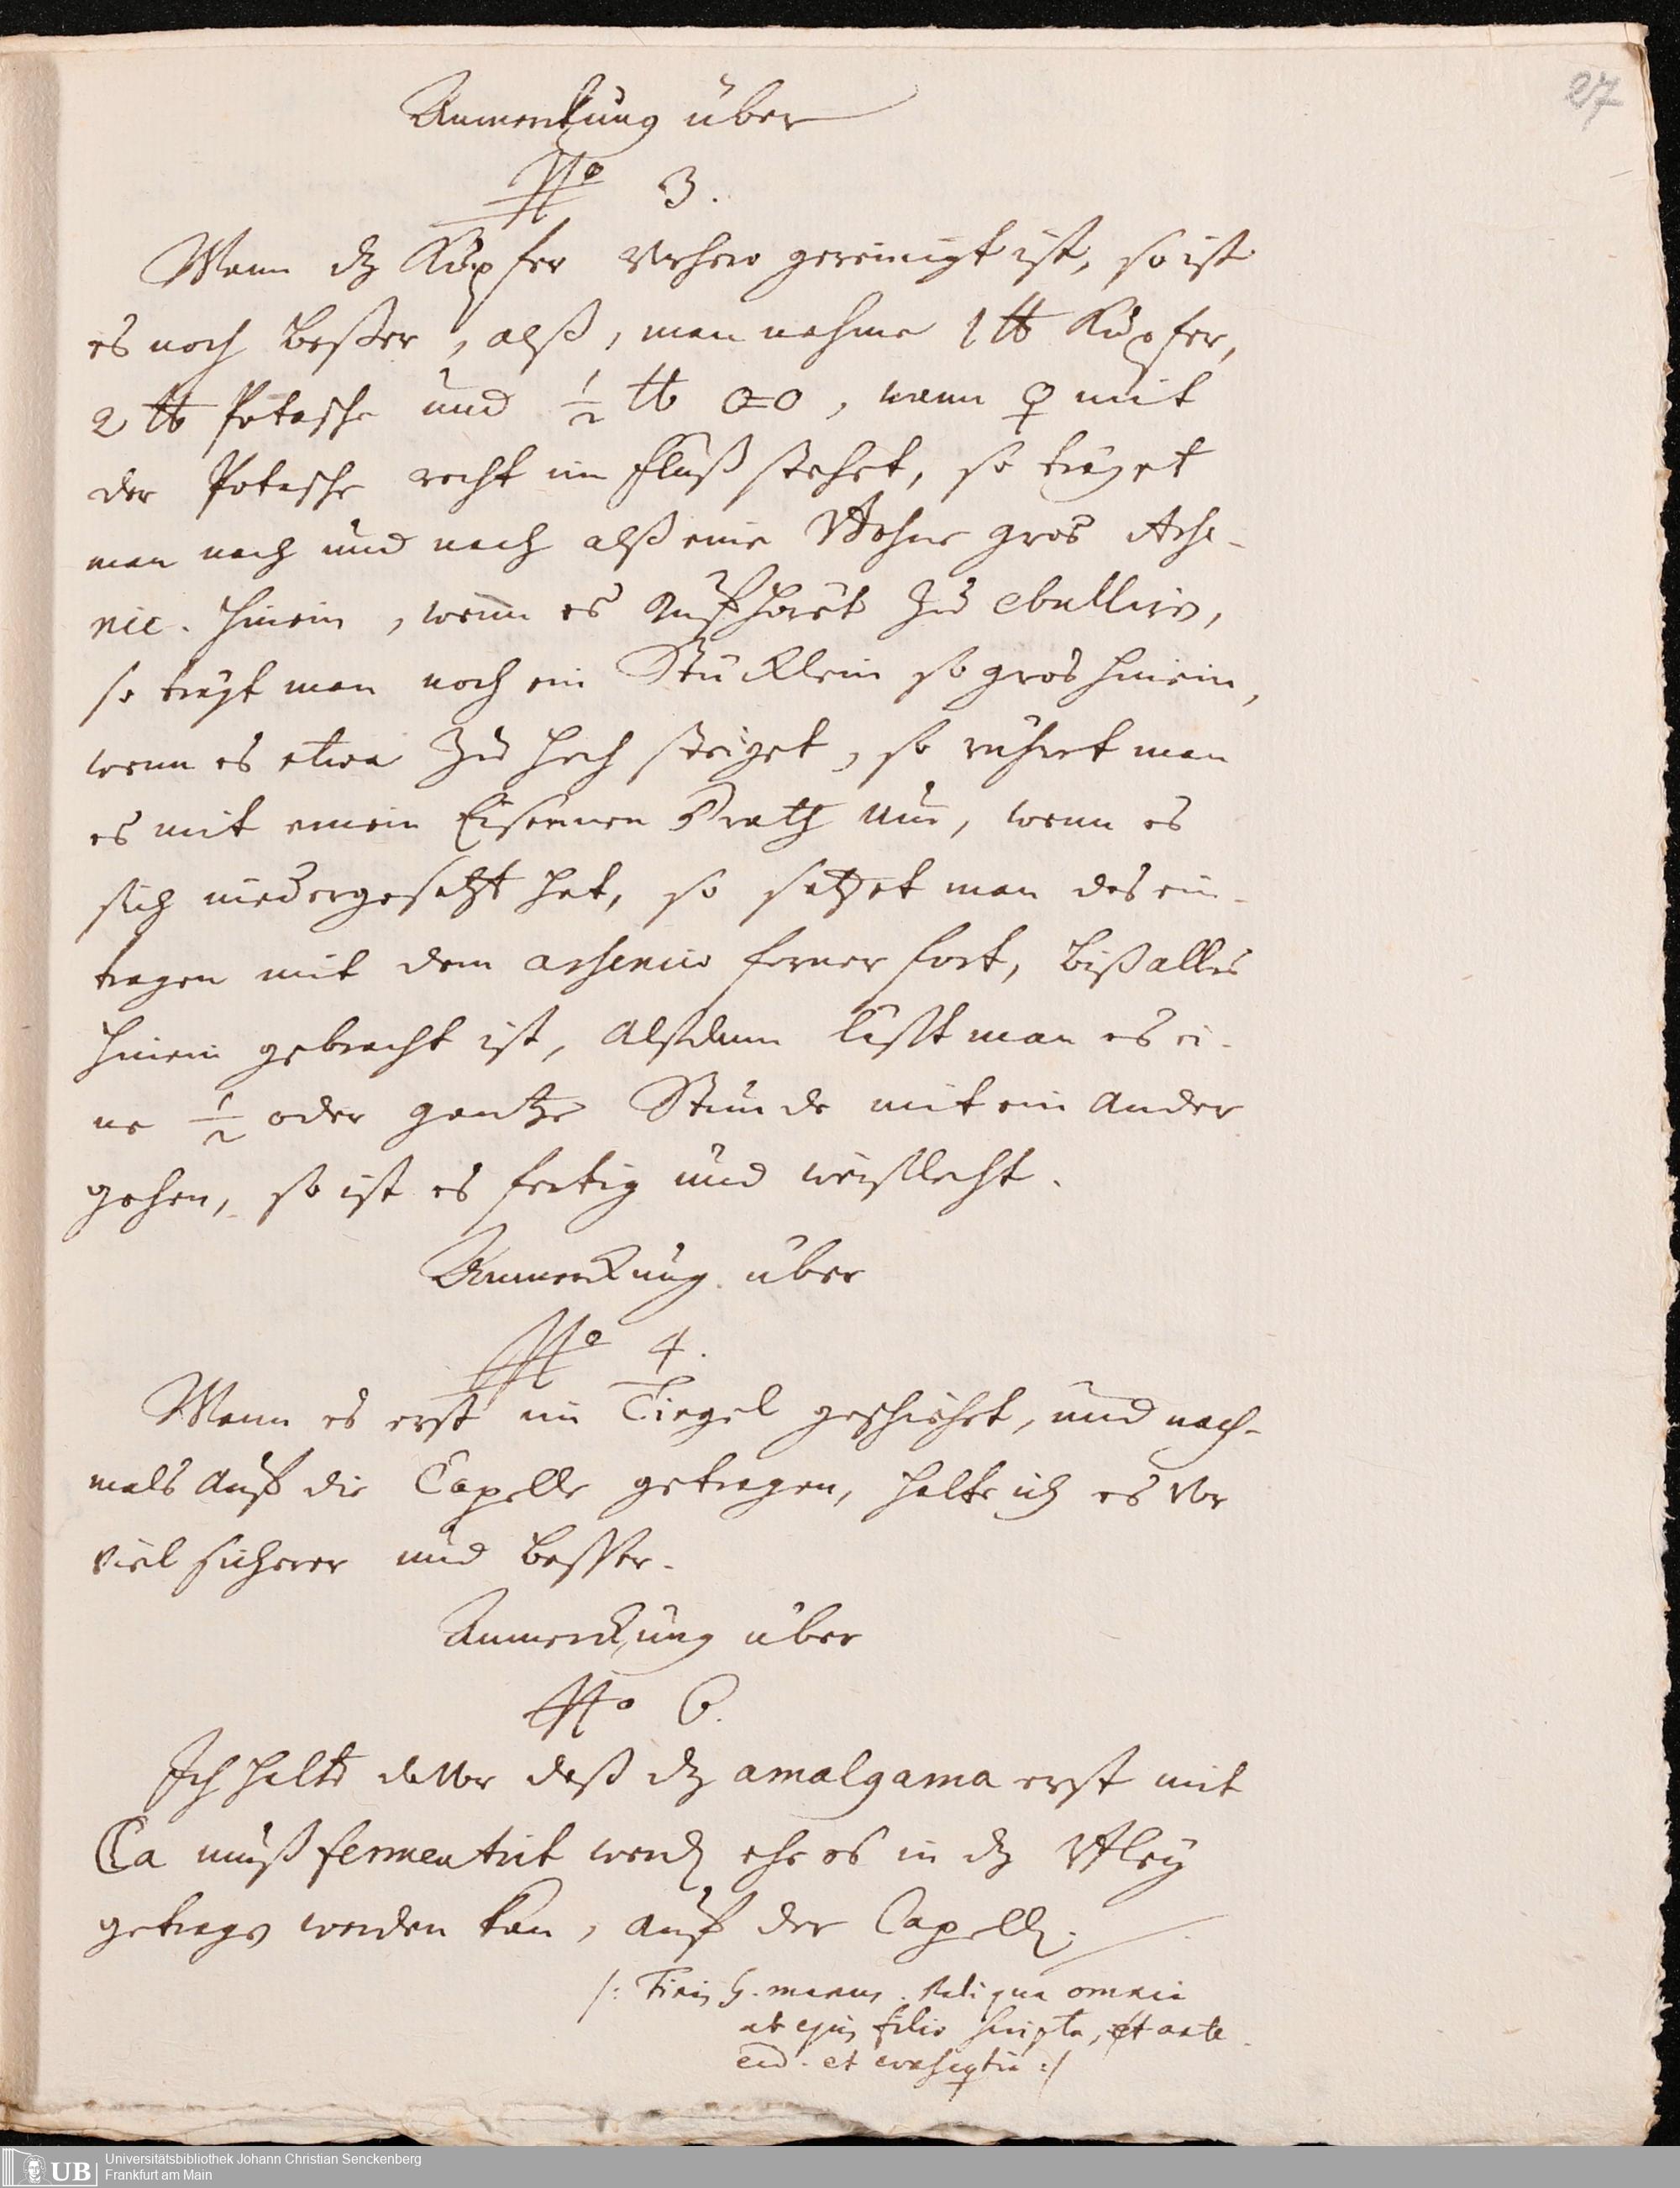 27
Anmerckung über
No 3.
Wann dz Kupfer vorhero gereinigt ist, so ist
es noch beßer, alß, man nehme 1 ℔ Kupfer,
2 ℔ Potasche und ½ ℔ o=o, wenn ♀ mit
der Potasche recht im Fluß stehet, so träget
man nach und nach alß eine Bohne gros Arse-
nic. hinein, wenn es aufhöret zu ebulliren,
so trägt man noch ein Stücklein so gros hinein,
wenn es etwa zu hoch steiget, so rühret man
es mit einem Eisernen Drath um, wenn es
sich niedergesetzt hat, so setzet man das ein-
tragen mit dem arsenico ferner fort, biß alles
hinein gebracht ist, alßdann läßt man es ei-
ne ½ oder gantze Stunde mit ein ander
gehen, so ist es fertig und weißlecht.
Anmerckung über
No 4.
Wann es erst im Tiegel geschiehet, und nach-
mals auf die Capelle getragen, halte ich es vor
viel sicherer und besser.
Anmerckung über
No 6.
Ich halte davor daß dz amalgama erst mit
muß fermentirt werden ehe es in dz Bley
getragen werden kan, auf der Capellen.
/: Finis manus. Reliqua omnia
ab ejus filio scripta, et ante
et :/
Universitätsbibliothek Johann Christian Senckenberg
Frankfurt am Main
UB